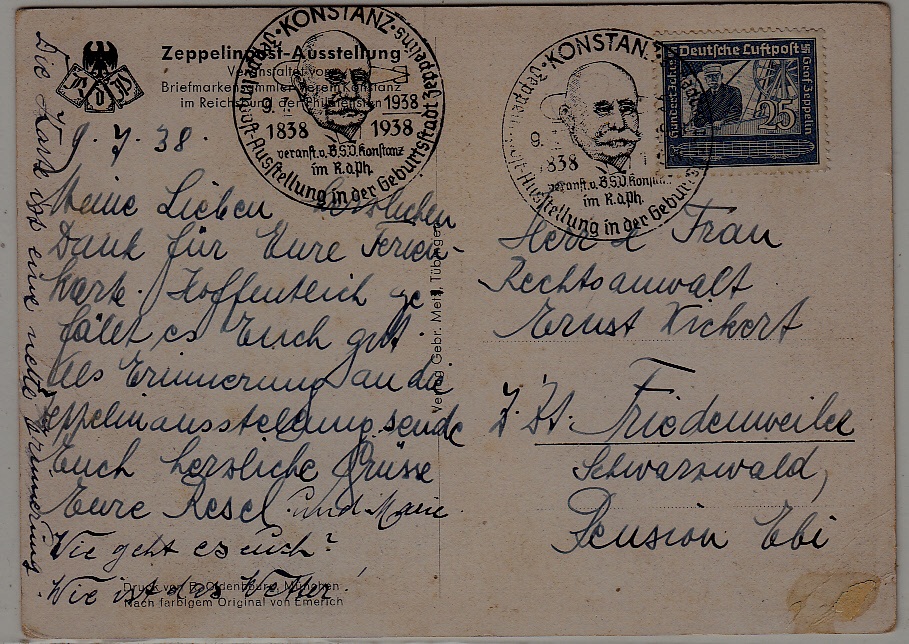 Zeppelinpost-Ausstellung
Veranstaltet vom
Briefmarkensammler-Verein Konstanz
im Reichsbund der Philatelisten
9. 7. 38.
Meine Lieben herzlichen
Dank für Eure Ferien-
karte. Hoffentlich ge-
fällt es Euch gut.
Als Erinnerung an die
Zeppelinausstellung sende
Euch herzliche Grüsse
Eure Resel und
Wie geht es euch?
Wie ist das Wetter!
Die Karte ist eine nette Erinnerung.
Druck von R. Oldenbourg, München
Nach farbigem Original von Emerich
Verlag Gebr. Metz, Tübingen
KONSTANZ
9.
1938
1838 1938
veranst. v. B.S.V. Konstanz
im R.d.Ph.
Zeppelinpost-Ausstellung in der Geburtsstadt Zeppelins
KONSTANZ
9.
1838
veranst. v. B.S.V. Konstanz
im R.d.Ph.
Ausstellung in der Geburts
Deutsche Luftpost
Hundert Jahre
Graf Zeppelin
25
Herr & Frau
Rechtsanwalt
Ernst Vickert
z. Zt. Friedenweiler
Schwarzwald,
Pension Ebi